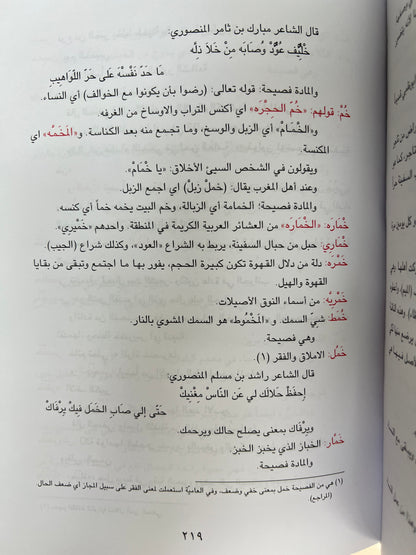 قال الشاعر مبارك بن ثامر المنصوري:
خْلَيِّف عُوَّدْ وصَابَه مِنْ خَلاَ ذِلُّه
مَا حَدّ نَفْسَهْ عَلَى حَرّ اللّوَاهِيبِ
والمادة فصيحة: قوله تعالى: (رضوا بأن يكونوا مع الخوالف) أي النساء.
خُمْ: قولهم: «خُمّ الحِجْرَه» أي أكنس التراب والاوساخ من الغرفه.
و«الخْمَامْ» أي الزبل والوسخ، وما تجمع منه بعد الكناسة. و«المْخَمُّه» اي
المكنسة.
ويقولون في الشخص السيئ الأخلاق: «يا خْمَامْ».
وعند أهل المغرب يقال: (خملْ زبلْ) اي اجمع الزبل.
والمادة فصيحة: الخمامة أي الزبالة، وخم البيت يخمه خماً أي كنسه.
خْمَارَه: «الخْمَارَه» من العشائر العربية الكريمة في المنطقة. واحدهم «خْمَيْرِي».
خْمَارِي: حبل من حبال السفينة، يربط به الشراع «العود»، وكذلك شراع (الجيب).
خَمْرَهْ: دلة من دلال القهوة تكون كبيرة الحجم، يفور بها ما اجتمع وتبقى من بقايا
القهوة والهيل.
خَمْرِيِّهْ: من أسماء النوق الأصيلات.
خْمَطْ: شيّ السمك. و«المَخْمُوط» هو السمك المشوي بالنار.
وهي فصيحة.
خَمَلْ: الاملاق والفقر (١).
قال الشاعر راشد بن مسلم المنصوري:
إحفَظْ حَلاَلَكْ لي عَن النَّاسْ مِغْنِيكْ
حَتَّى إلي صَابِ الخَمَلْ فِيكْ يرْفَاكْ
ويرْفَاك بمعنى يصلح حالك ويرحمك.
خَمَّار: الخباز الذي يخبز الخبز.
والمادة فصيحة.
(١) هي من الفصيحة خمل بمعنى خفي وضعف، وفي العاميّة استعملت لمعنى الفقر على سبيل المجاز أي ضعف الحال
(المراجع)
٢١٩